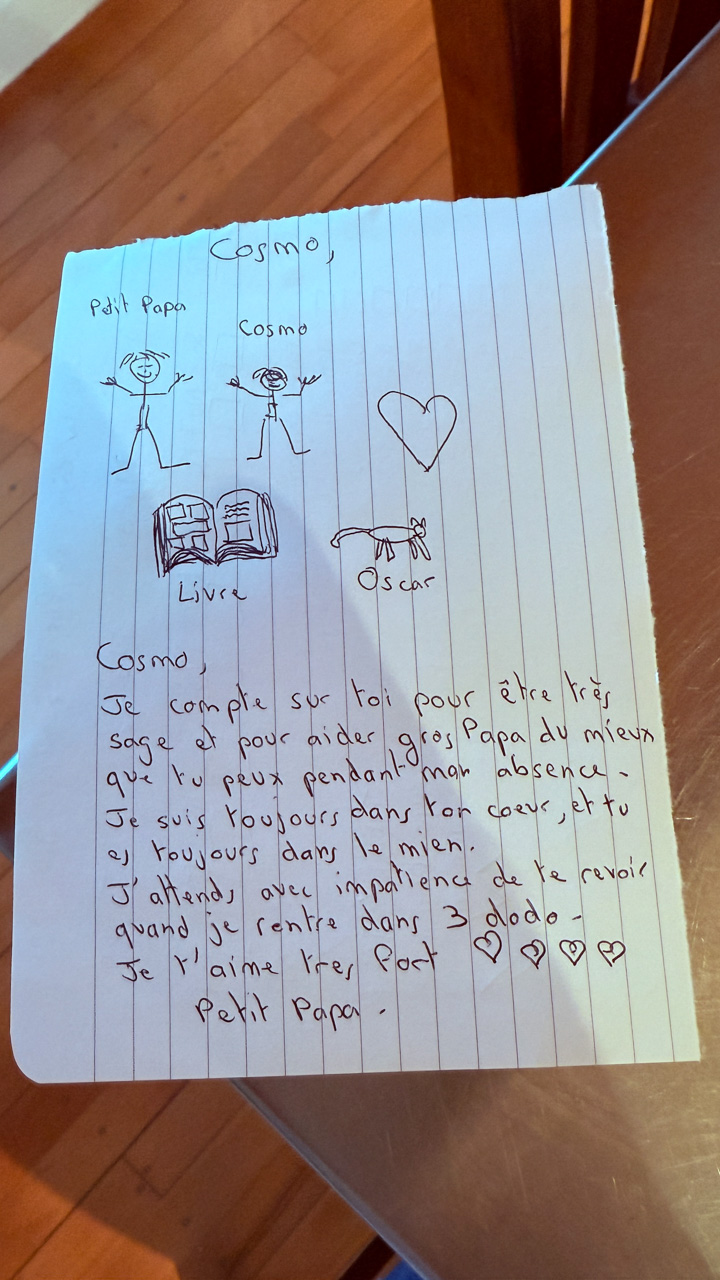 Cosmo,
Petit Papa
Cosmo
Livre
Oscar
Cosmo,
Je compte sur toi pour être très
sage et pour aider gros Papa du mieux
que tu peux pendant mon absence.
Je suis toujours dans ton coeur, et tu
es toujours dans le mien.
J'attends avec impatience de te revoir
quand je rentre dans 3 dodo.
Je t'aime tres fort ♡ ♡ ♡ ♡
Petit Papa.